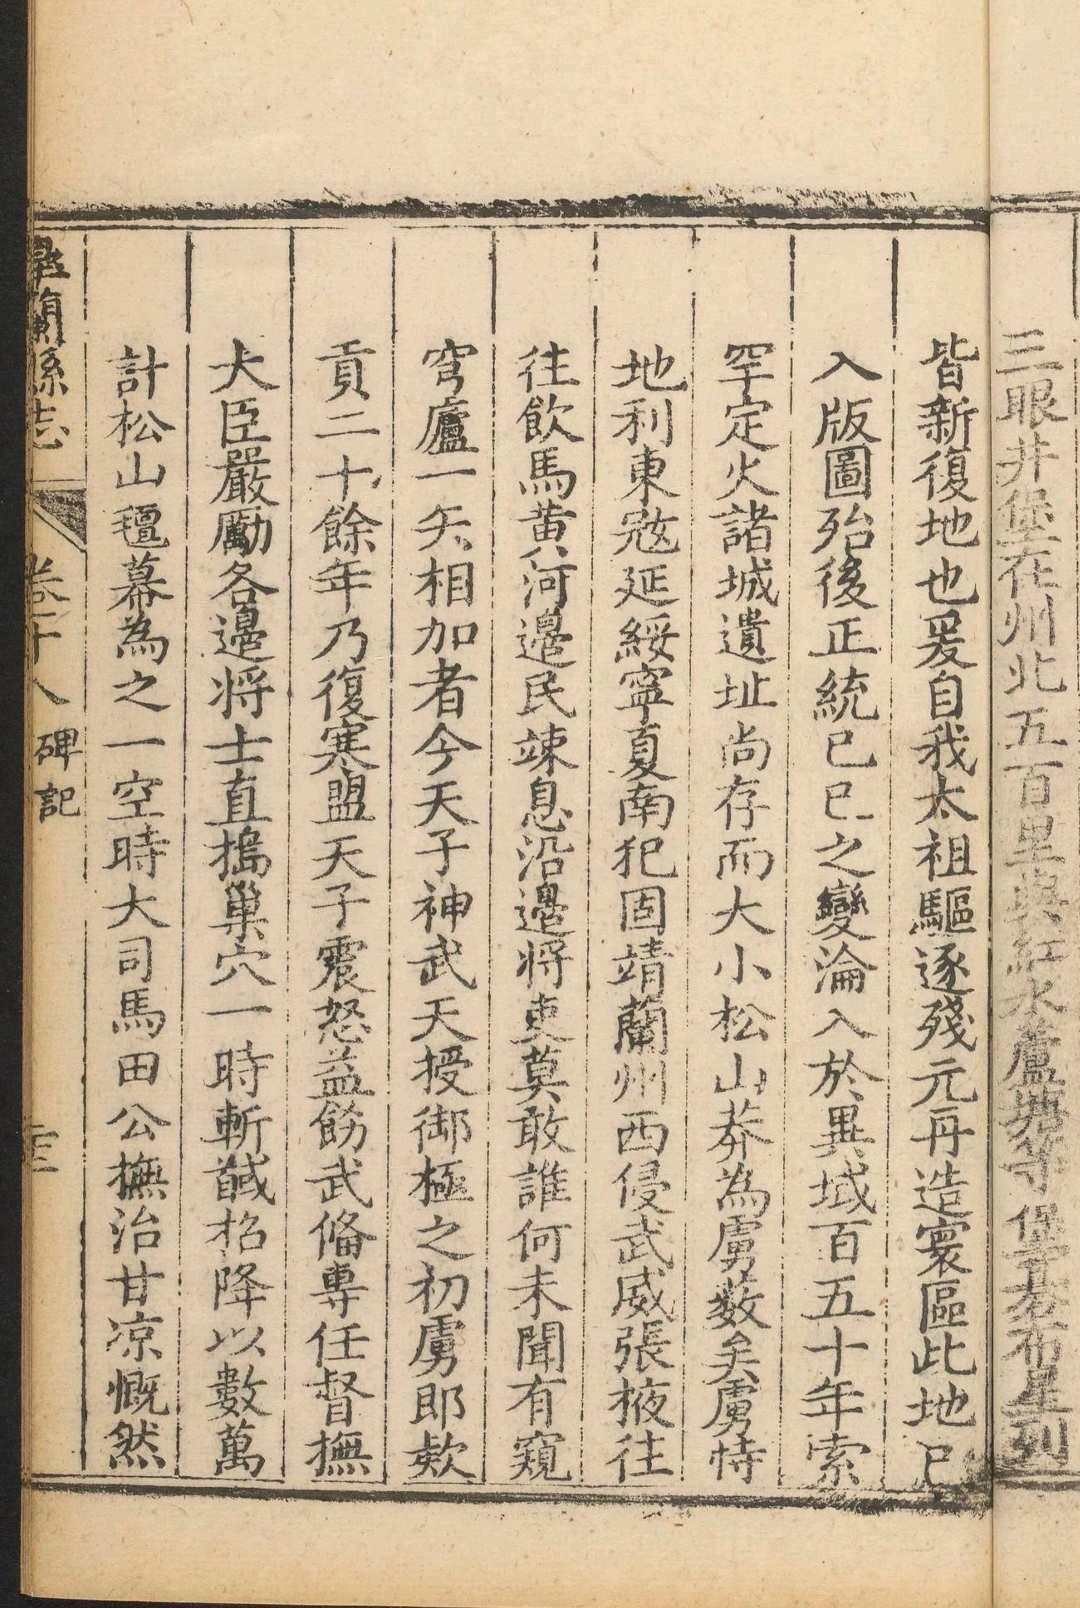 三眼井堡在州北五百里與紅水蘆塘等堡碁布星列
皆新復地也爰自我太祖驅逐殘元再造寰區此地已
入版圖殆後正統己巳之變淪入於異域百五十年索
罕定火諸城遺址尚存而大小松山莽為虜藪矣虜恃
地利東寇延綏寧夏南犯固靖蘭州西侵武威張掖往
往飲馬黄河邊民竦息沿邊將吏莫敢誰何未聞有窺
穹廬一矢相加者今天子神武天授御極之初虜郎欵
貢二十餘年乃復寒盟天子震怒益飭武俻專任督撫
大臣嚴勵各邊將士直搗巢穴一時斬馘招降以數萬
計松山氊幕為之一空時大司馬田公撫治甘凉慨然
皐蘭縣志
卷十八
碑記